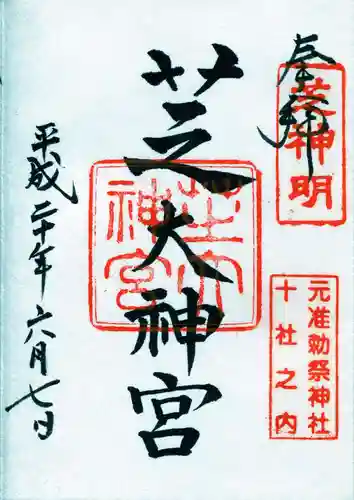 奉拝
芝神明
元准勅祭神社
十社之内
芝大神宮
芝大神宮
平成二十年六月七日